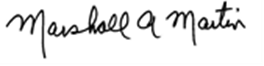 Marshall A Martin